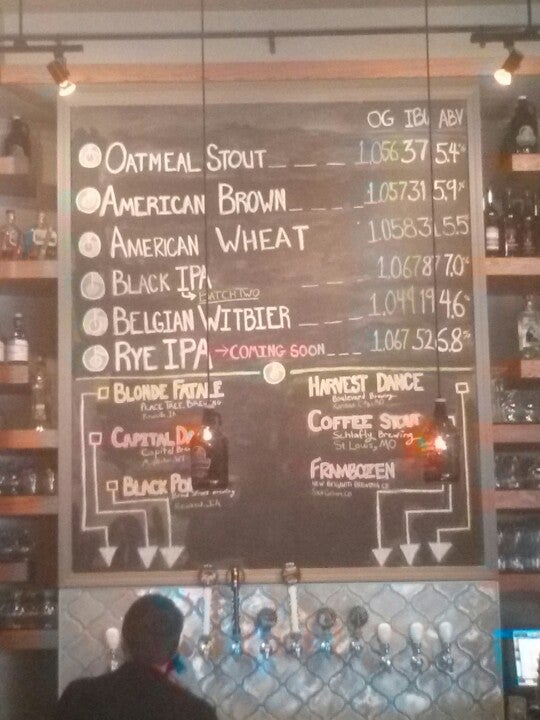 OG IBU ABV
OATMEAL STOUT 1.056 37 5.4%
AMERICAN BROWN 1.057 31 5.9%
AMERICAN WHEAT 1.058 31 5.5
BLACK IPA 1.067 87 7.0%
BATCH TWO
BELGIAN WITBIER 1.049 19 4.6%
RYE IPA → COMING SOON 1.067 52 6.8%
BLONDE
PEACE TREE BREWING
Knoxville, IA
CAPITAL
Capital
BLACK
HARVEST DANCE
Boulevard Brewing
Kansas City, MO
COFFEE STOUT
Schlafly Brewing
St Louis, MO
FRAMBOZEN
NEW BELGIUM BREWING CO
Fort Collins, CO